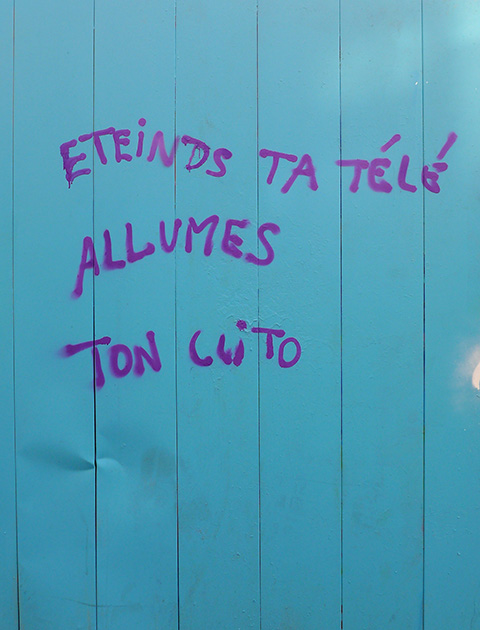 ETEiNDS TA TÉLÉ
ALLUMES
TON CLiTO